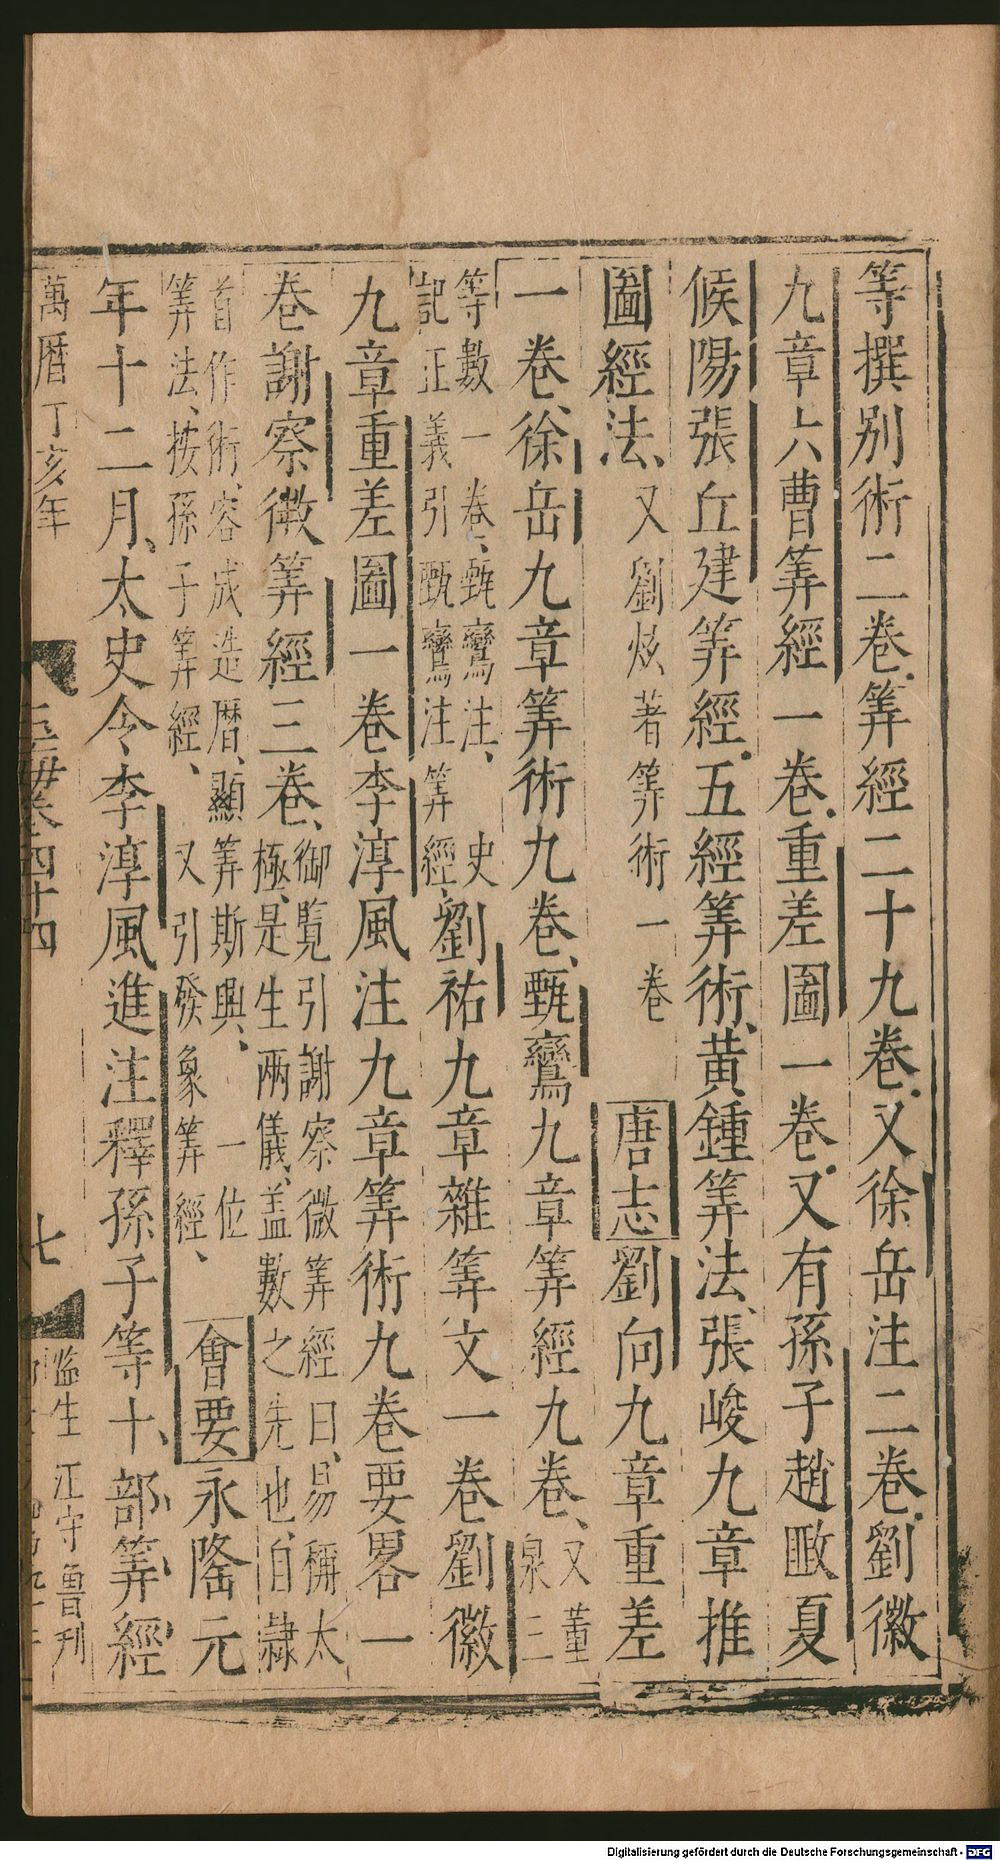 等撰別術二卷筭經二十九卷又徐岳注二卷劉徽
九章六曹筭經一卷重差圖一卷又有孫子趙㢓夏
候陽張丘建筭經五經筭術黃鍾筭法張峻九章推
圖經法又劉炫著筭術一卷唐志劉向九章重差
一卷徐岳九章筭術九卷甄鸞九章筭經九卷又董泉三
等數一卷甄鸞注史記正義引甄鸞注筭經劉祐九章雜筭文一卷劉徽
九章重差圖一卷李淳風注九章筭術九卷要畧一
卷謝察微筭經三卷御覽引謝察微筭經曰易稱太極是生兩儀蓋數之先也自隷
首作術容成造曆顯筭斯興一位筭法按孫子筭經又引發象筭經會要永隆元
年十二月太史令李淳風進注釋孫子等十部筭經
萬曆丁亥年
玉海卷四十四
七
监生江守魯刊
Digitalisierung gefördert durch die Deutsche Forschungsgemeinschaft - DFG